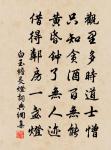 觀星多時道士憎
只知貪酒百無能
黃昏鐘了無人迹
借得鄰房一盞燈
白玉蟾長燈詞典網毫